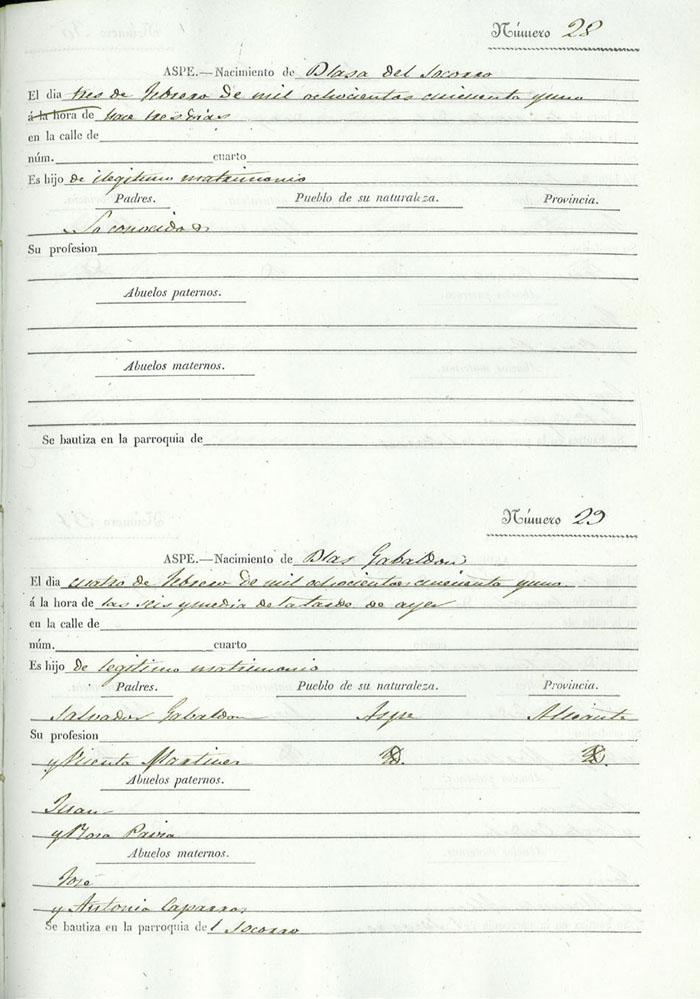 Número 28
ASPE.—Nacimiento de Blasa del Socorro
El dia tres de Febrero de mil ochocientos cincuenta y uno
á la hora de hace tres dias
en la calle de
núm. cuarto
Es hijo de ilegitimo matrimonio
Padres. Pueblo de su naturaleza. Provincia.
Su profesion
Abuelos paternos.
Abuelos maternos.
Se bautiza en la parroquia de
Número 29
ASPE.—Nacimiento de Blas Gabaldon
El dia cuatro de Febrero de mil ochocientos cincuenta y uno
á la hora de las seis y media de la tarde de ayer
en la calle de
núm. cuarto
Es hijo de legitimo matrimonio
Padres. Pueblo de su naturaleza. Provincia.
Salvador Gabaldon Aspe Alicante
Su profesion
y Vicenta Martinez
Abuelos paternos.
Juan
y Rosa
Abuelos maternos.
José
y Antonia Caparros
Se bautiza en la parroquia del Socorro